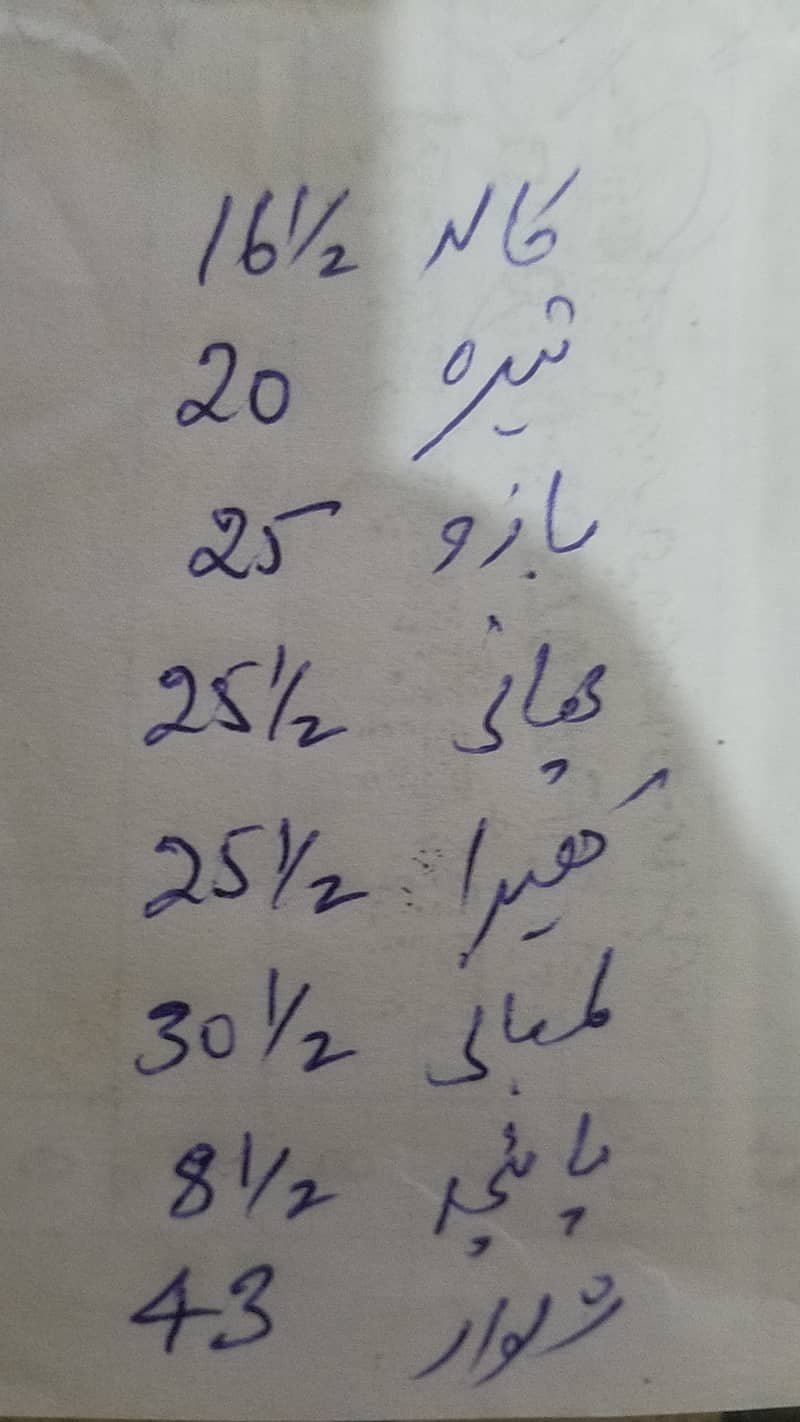 کالر 16 1/2
تیرہ 20
بازو 25
چھاتی 25 1/2
گھیرا 25 1/2
لمبائی 30 1/2
پانچہ 8 1/2
شلوار 43